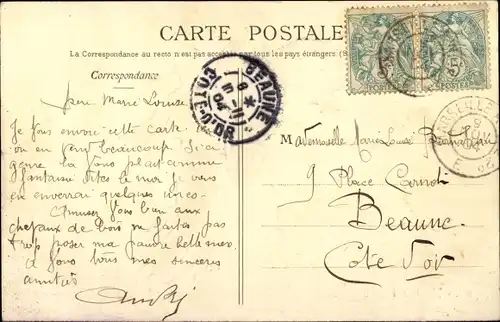 CARTE POSTALE
La Correspondance au recto n'est pas acceptée par tous les pays étrangers (S
Correspondance
BEAUNE
CÔTE-D'OR
POSTES
POSTES
Marie Louise
Je vous envoie cette carte
on en vend beaucoup Si ce
genre là vous plait comme
fantaisie dites le moi Je vous
en enverrai quelques unes
Amusez vous bien aux
chevaux de bois ne faites pas
trop
à vous tous mes sincères
amitiés
Mademoiselle Marie Louise
9 Place Carnot
Beaune
Côte d'Or